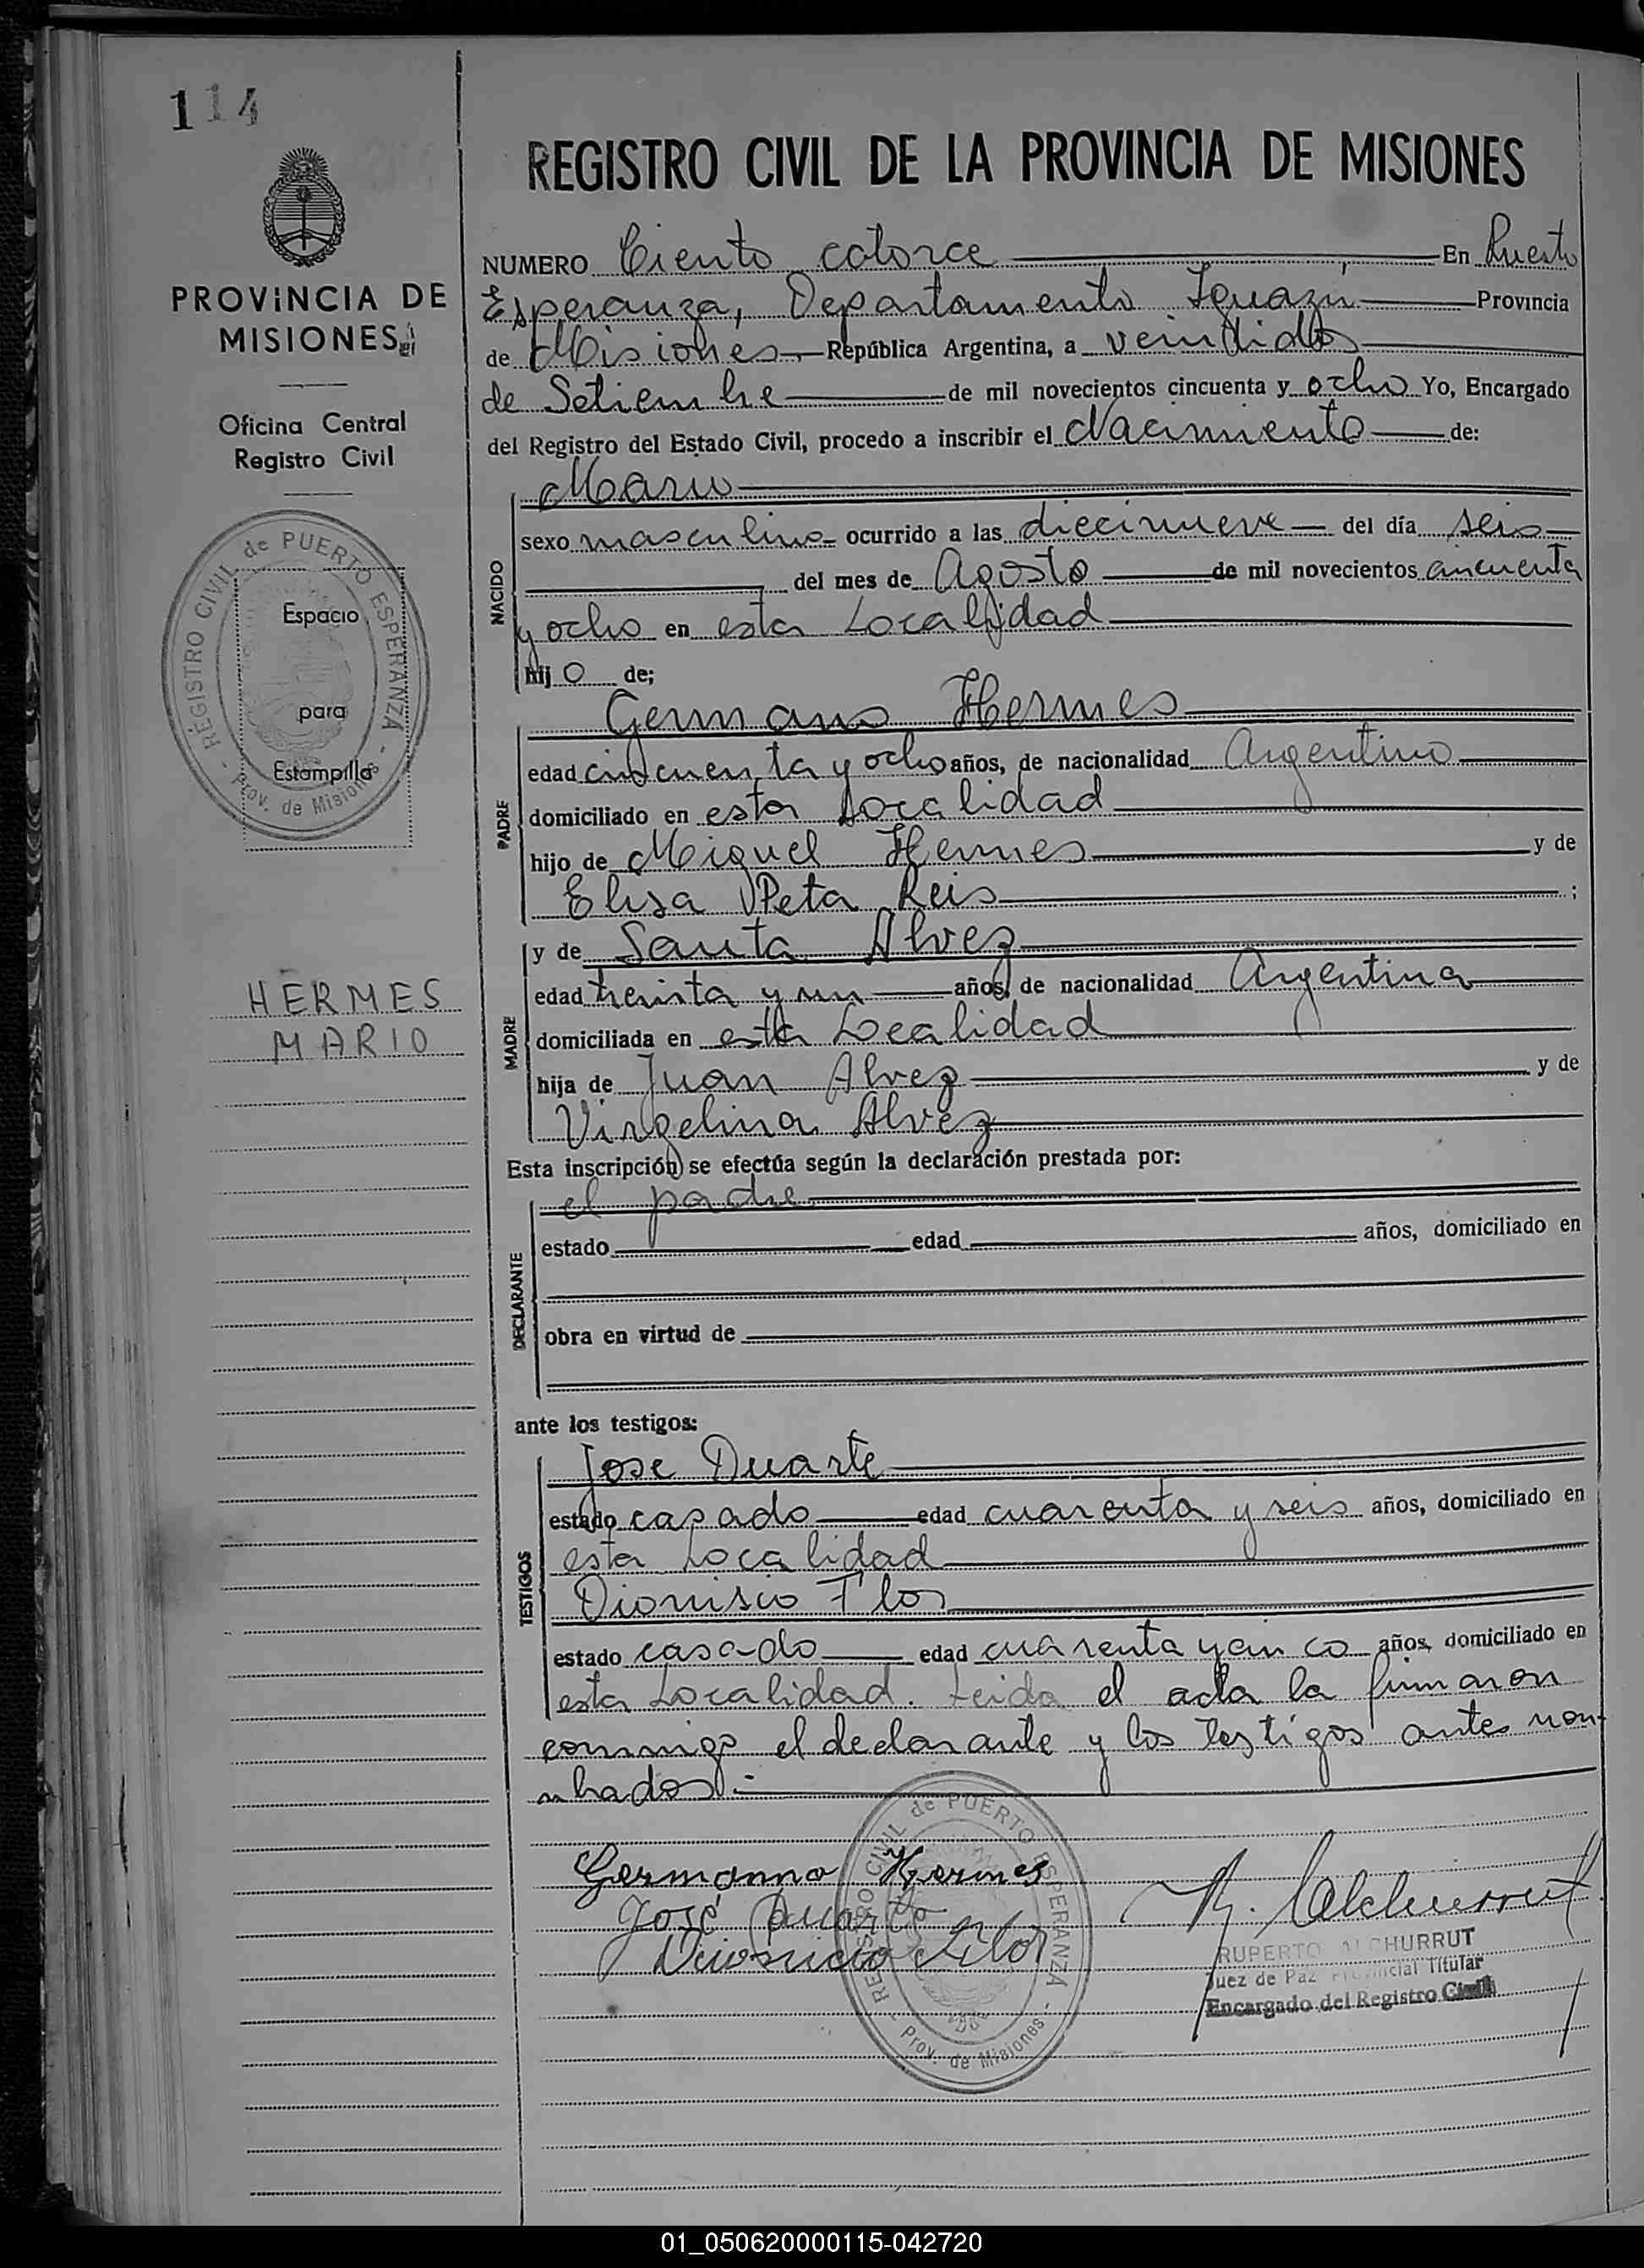 114
PROVINCIA DE
MISIONES
Oficina Central
Registro Civil
REGISTRO CIVIL de PUERTO ESPERANZA
- Prov. de Misiones -
Espacio
para
Estampilla
HERMES
MARIO
REGISTRO CIVIL DE LA PROVINCIA DE MISIONES
NUMERO Ciento catorce En Puerto
Esperanza, Departamento Iguazú Provincia
de Misiones República Argentina, a veintidos
de Setiembre de mil novecientos cincuenta y ocho Yo, Encargado
del Registro del Estado Civil, procedo a inscribir el Nacimiento de:
NACIDO
Mario
sexo masculino ocurrido a las diecinueve del día seis
del mes de Agosto de mil novecientos cincuenta
y ocho en esta Localidad
hijo de;
PADRE
Germano Hermes
edad cincuenta y ocho años, de nacionalidad Argentino
domiciliado en esta Localidad
hijo de Miguel Hermes y de
Elisa Peta Reis ;
MADRE
y de Santa Alvez
edad treinta y un años, de nacionalidad Argentina
domiciliada en esta Localidad
hija de Juan Alvez y de
Virgelina Alvez
Esta inscripción se efectúa según la declaración prestada por:
DECLARANTE
el padre
estado edad años, domiciliado en
obra en virtud de
ante los testigos:
TESTIGOS
Jose Duarte
estado casado edad cuarenta y seis años, domiciliado en
esta Localidad
Dionisio Flor
estado casado edad cuarenta y cinco años, domiciliado en
esta Localidad. Leida el acta la firmaron
conmigo el declarante y los testigos antes nom-
mbados.-
Germanno Hermes
José Duarte
Dionicio Flor
REGISTRO CIVIL de PUERTO ESPERANZA
- Prov. de Misiones -
R. Alchurrut
RUPERTO ALCHURRUT
Juez de Paz Provincial Titular
Encargado del Registro Civil
01_050620000115-042720